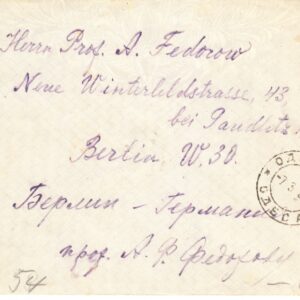 Herrn Prof. A. Fedorow
Neue Winterfeldstrasse, 43,
bei
Berlin W. 30.
Берлин – Германи
проф. А. Ф. Федорову
54